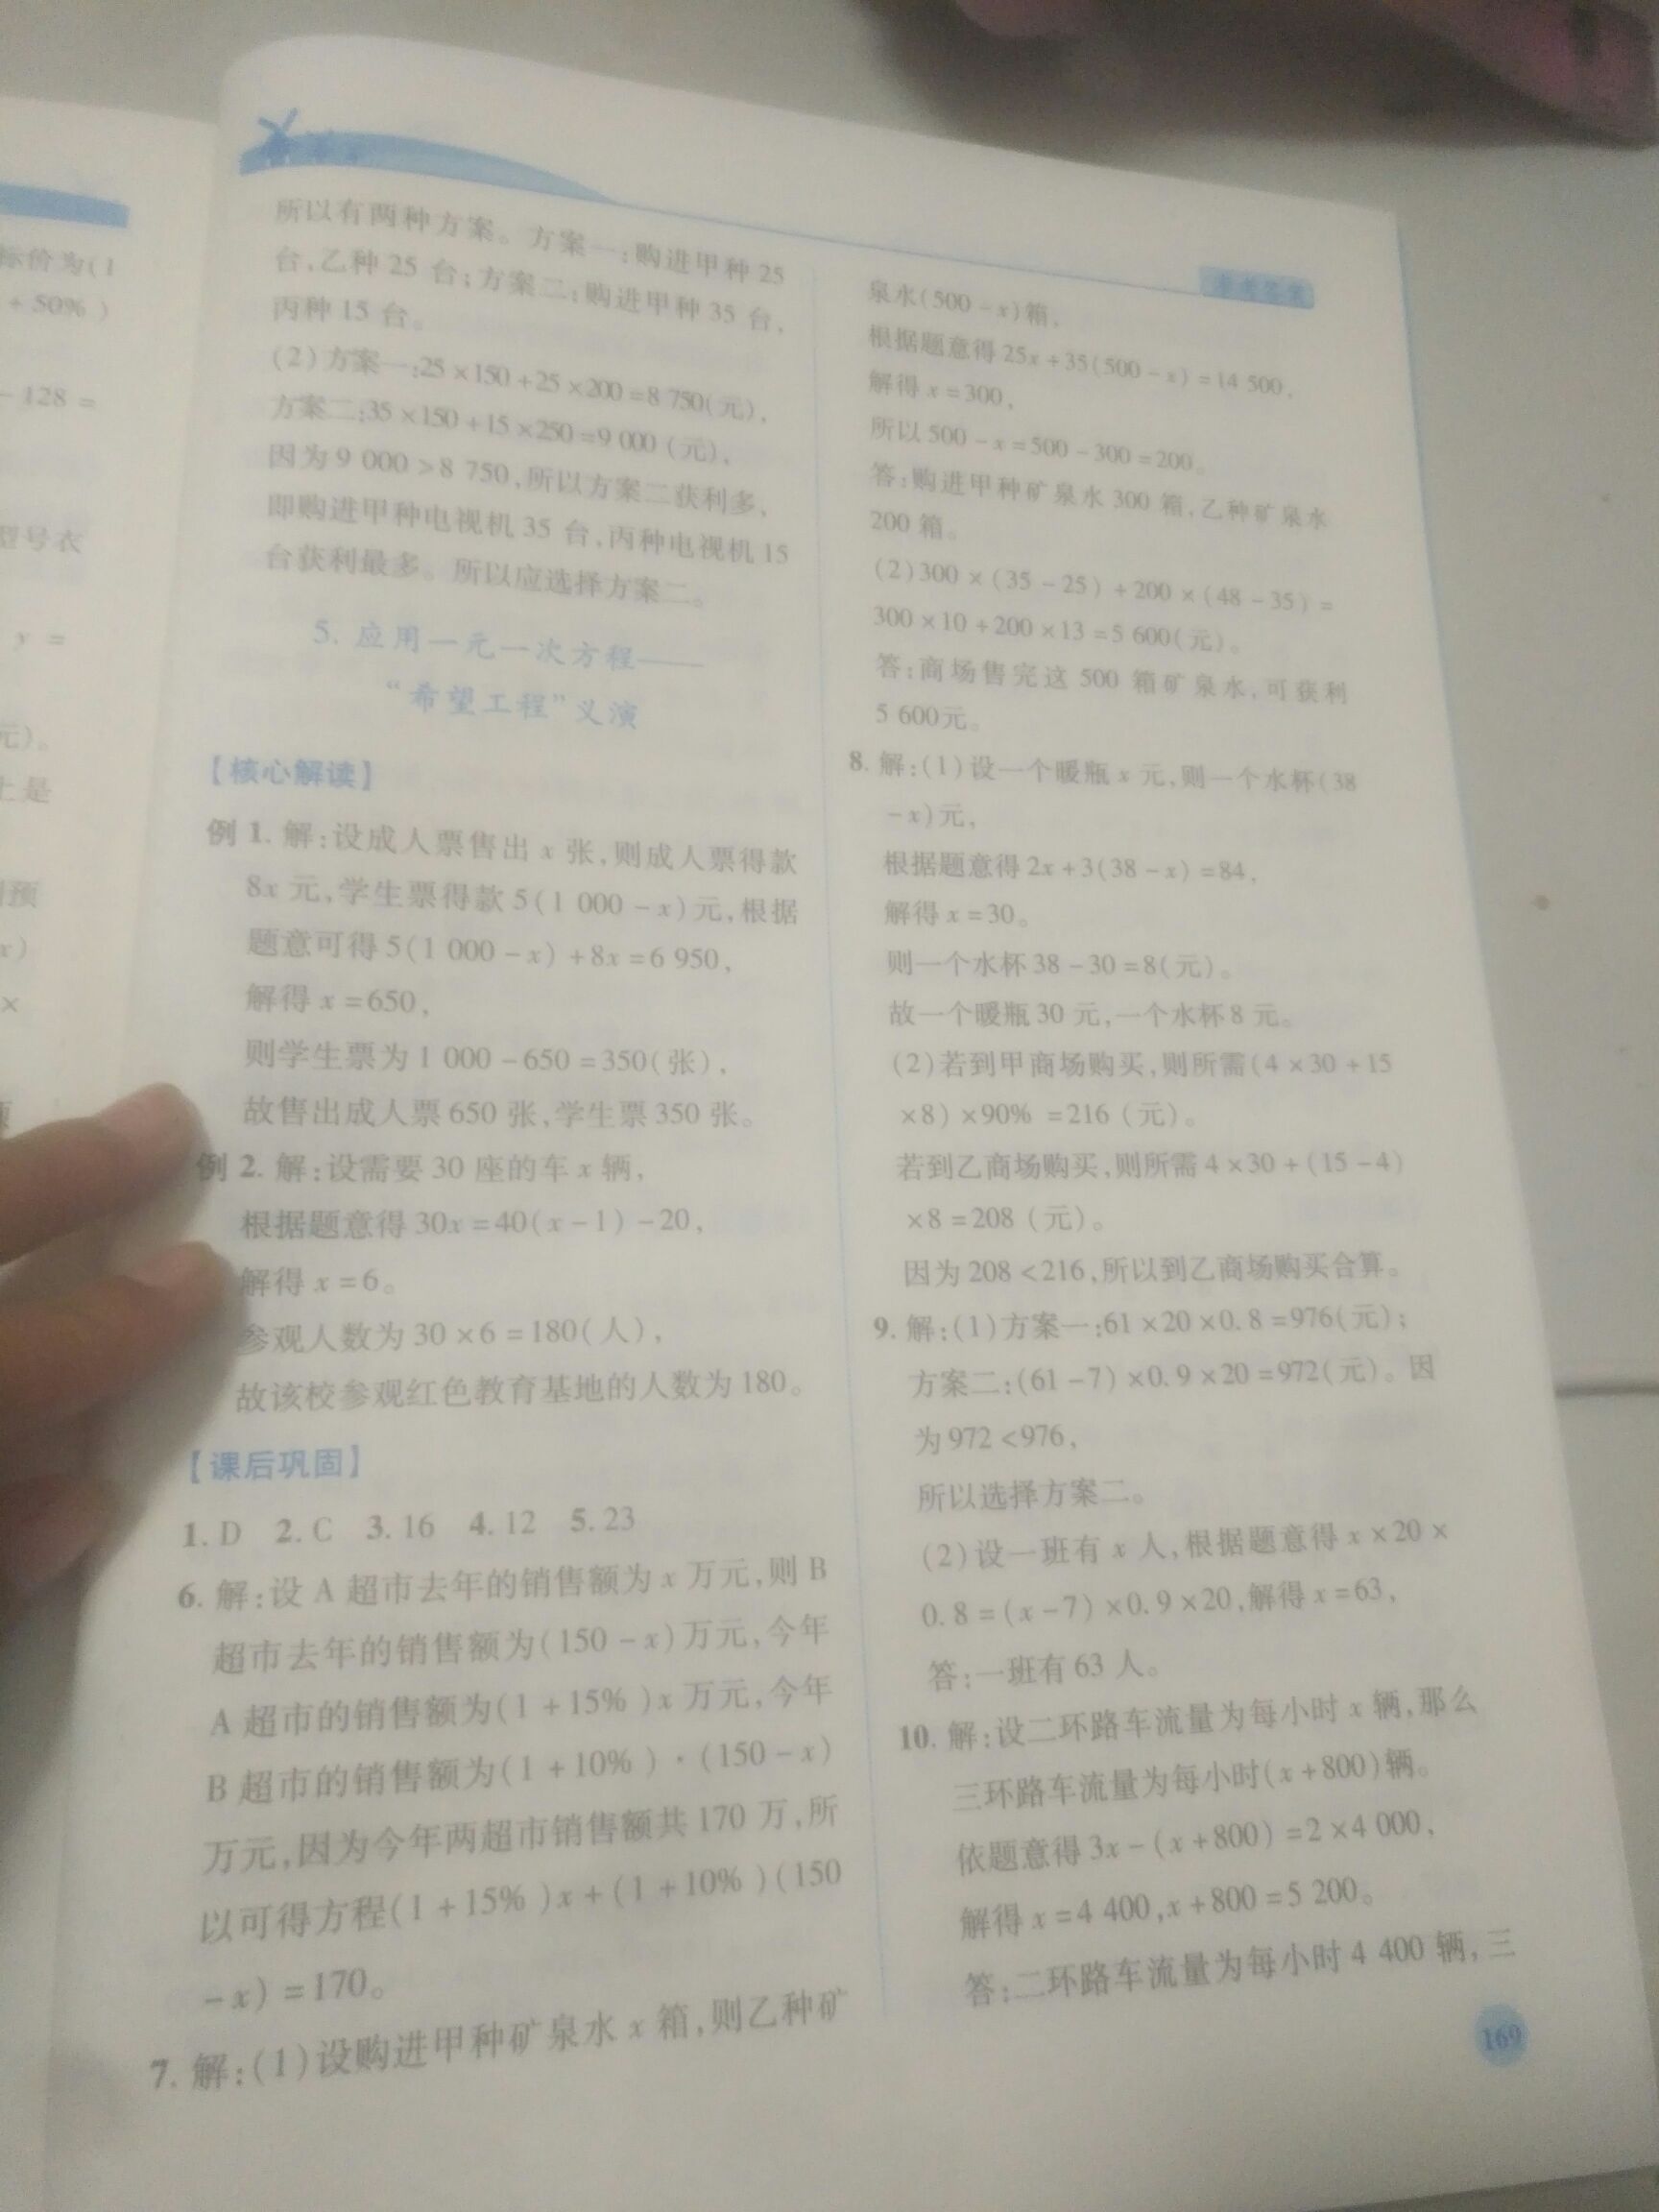 标价为(1
+50%)
-128=
型号衣
y=
元)。
上是
预
x)
×
所以有两种方案。方案一:购进甲种25
台,乙种25台;方案二:购进甲种35台,
丙种15台。
(2)方案一:25×150+25×200=8 750(元),
方案二:35×150+15×250=9 000(元),
因为9 000>8 750,所以方案二获利多,
即购进甲种电视机35台,丙种电视机15
台获利最多。所以应选择方案二。
5. 应用一元一次方程——
“希望工程”义演
【核心解读】
例1. 解:设成人票售出x张,则成人票得款
8x元,学生票得款5(1 000-x)元,根据
题意可得5(1 000-x)+8x=6 950,
解得x=650,
则学生票为1 000-650=350(张),
故售出成人票650张,学生票350张。
例2. 解:设需要30座的车x辆,
根据题意得30x=40(x-1)-20,
解得x=6。
参观人数为30×6=180(人),
故该校参观红色教育基地的人数为180。
【课后巩固】
1. D 2. C 3. 16 4. 12 5. 23
6. 解:设A超市去年的销售额为x万元,则B
超市去年的销售额为(150-x)万元,今年
A超市的销售额为(1+15%)x万元,今年
B超市的销售额为(1+10%)·(150-x)
万元,因为今年两超市销售额共170万,所
以可得方程(1+15%)x+(1+10%)(150
-x)=170。
7. 解:(1)设购进甲种矿泉水x箱,则乙种矿
参考答案
泉水(500-x)箱,
根据题意得25x+35(500-x)=14 500,
解得x=300,
所以500-x=500-300=200。
答:购进甲种矿泉水300箱,乙种矿泉水
200箱。
(2)300×(35-25)+200×(48-35)=
300×10+200×13=5 600(元)。
答:商场售完这500箱矿泉水,可获利
5 600元。
8. 解:(1)设一个暖瓶x元,则一个水杯(38
-x)元,
根据题意得2x+3(38-x)=84,
解得x=30。
则一个水杯38-30=8(元)。
故一个暖瓶30元,一个水杯8元。
(2)若到甲商场购买,则所需(4×30+15
×8)×90%=216(元)。
若到乙商场购买,则所需4×30+(15-4)
×8=208(元)。
因为208<216,所以到乙商场购买合算。
9. 解:(1)方案一:61×20×0.8=976(元);
方案二:(61-7)×0.9×20=972(元)。因
为972<976,
所以选择方案二。
(2)设一班有x人,根据题意得x×20×
0.8=(x-7)×0.9×20,解得x=63,
答:一班有63人。
10. 解:设二环路车流量为每小时x辆,那么
三环路车流量为每小时(x+800)辆。
依题意得3x-(x+800)=2×4 000,
解得x=4 400,x+800=5 200。
答:二环路车流量为每小时4 400辆,三
169